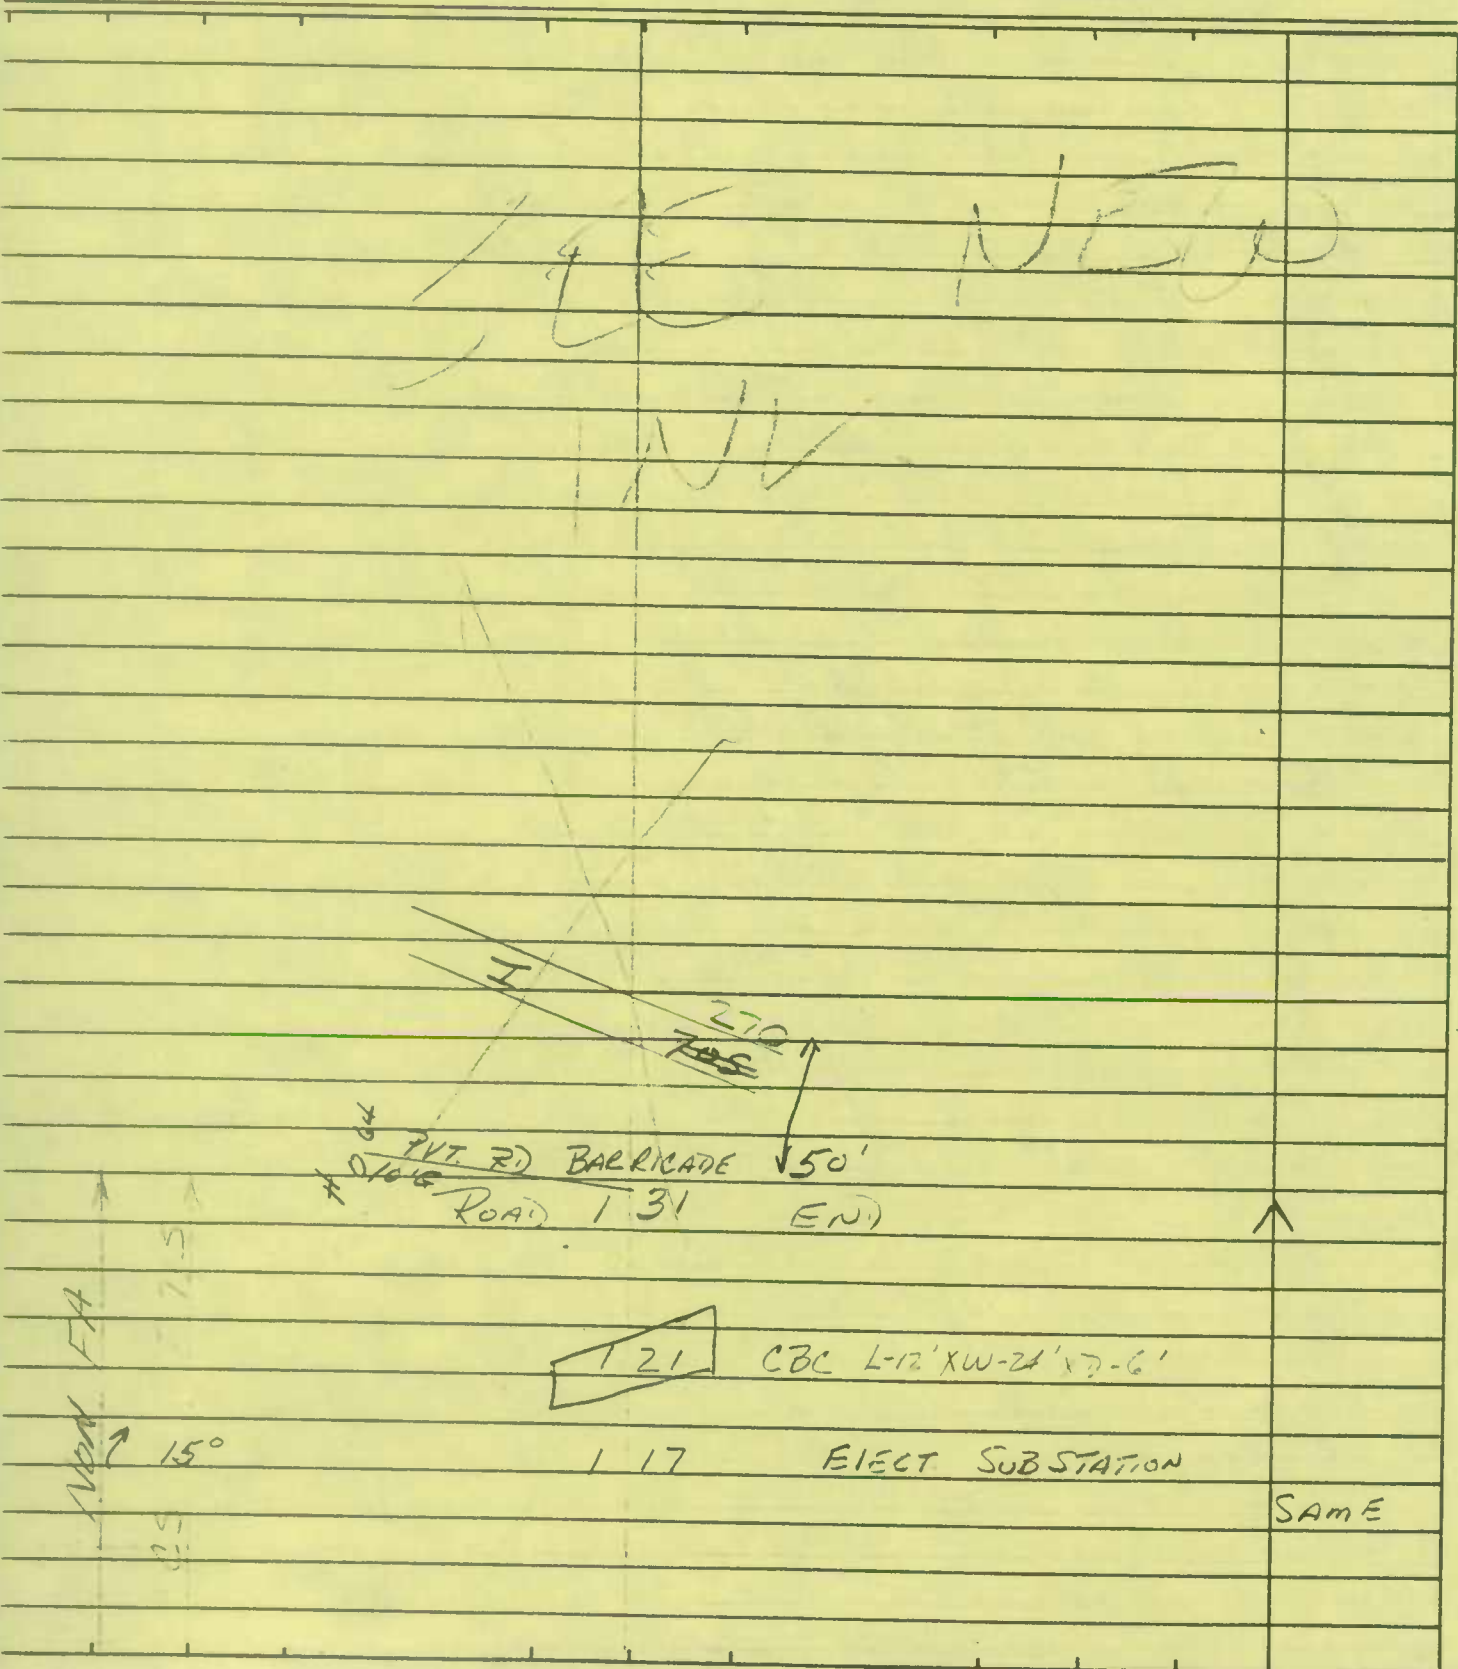 SEE NEW
INV
I
270
PVT. RD BARRICADE 50'
ROAD 1 31 END
1 21 CBC L-12' X W-21' X D-6'
15° 1 17 ELECT SUBSTATION
SAME
NON FA